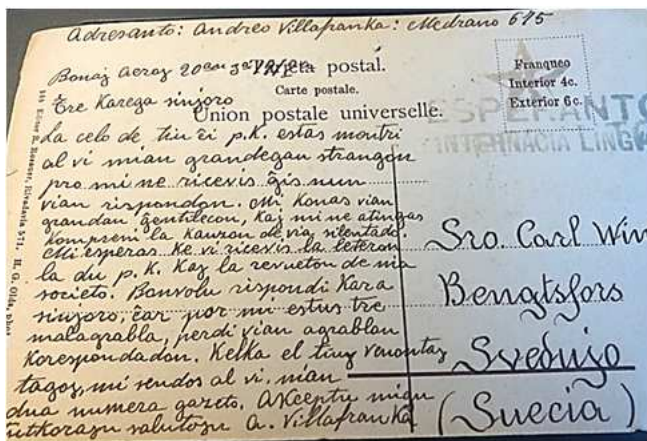 Adresanto: Andreo Villafranka: Medrano 675
Bonaj Aeroj 20an
Tarjeta postal.
Carte postale.
Union postale universelle.
Franqueo
Interior 4c.
Exterior 6c.
ESPERANTO
INTERNACIA LINGV
Tre Karega sinjoro
La celo de tiu ĉi p.K. estas montri
al vi mian grandegan strangon
pro mi ne ricevis ĝis nun
vian rispondon. Mi konas vian
grandan ĝentilecon, kaj mi ne atingas
kompreni la kauzon de via silentado.
Mi esperas ke vi ricevis la leteron
la du p.K. Kaj la revueton de nia
societo. Bonvolu rispondi Kara
sinjoro, ĉar por mi estus tre
malagrabla, perdi vian agrablan
Korespondadon. Kelka el tiuj venontaj
tagoj, mi sendos al vi, nian
dua numera gazeto. Akceptu mian
tutkorajn salutojn A. Villafranka
Sro. Carl Win
Bengtsfors
Svedujo
(Suecia)